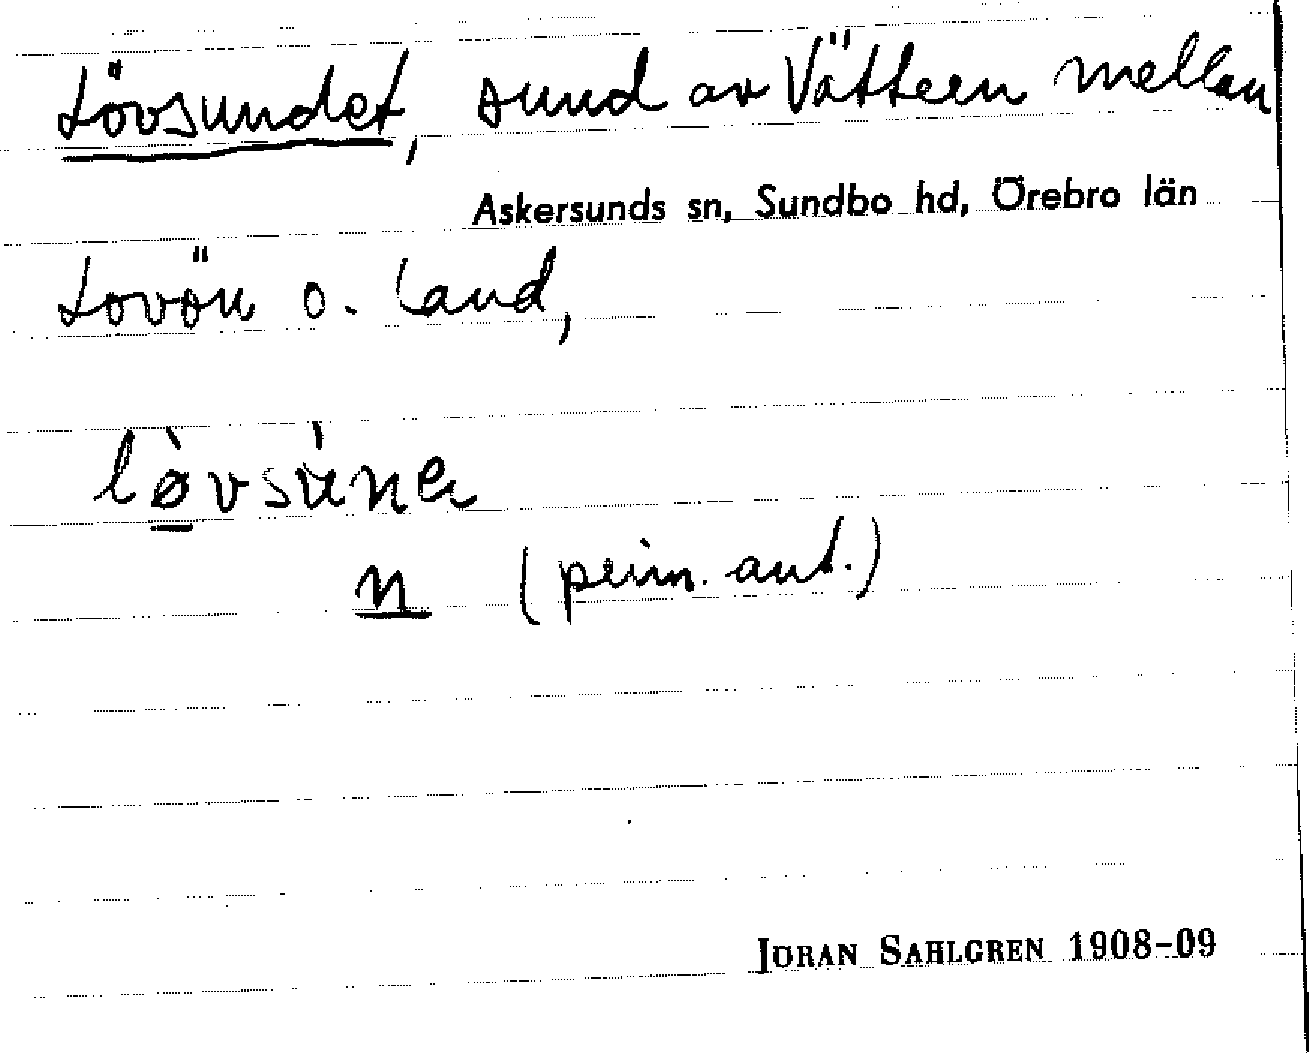 Lövsundet, sund av Vättern mellan
Askersunds sn, Sundbo hd, Örebro län
Lovön o. land,
lø̀vsúnen
n (prim. ant.)
JÖRAN SAHLGREN 1908-09